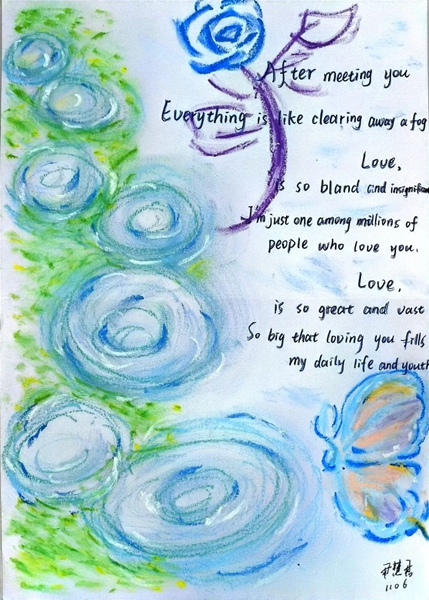 After meeting you
Everything is like clearing away a fog
Love,
is so bland and insignificant
I'm just one among millions of
people who love you.
Love,
is so great and vast
So big that loving you fills
my daily life and youth
1106